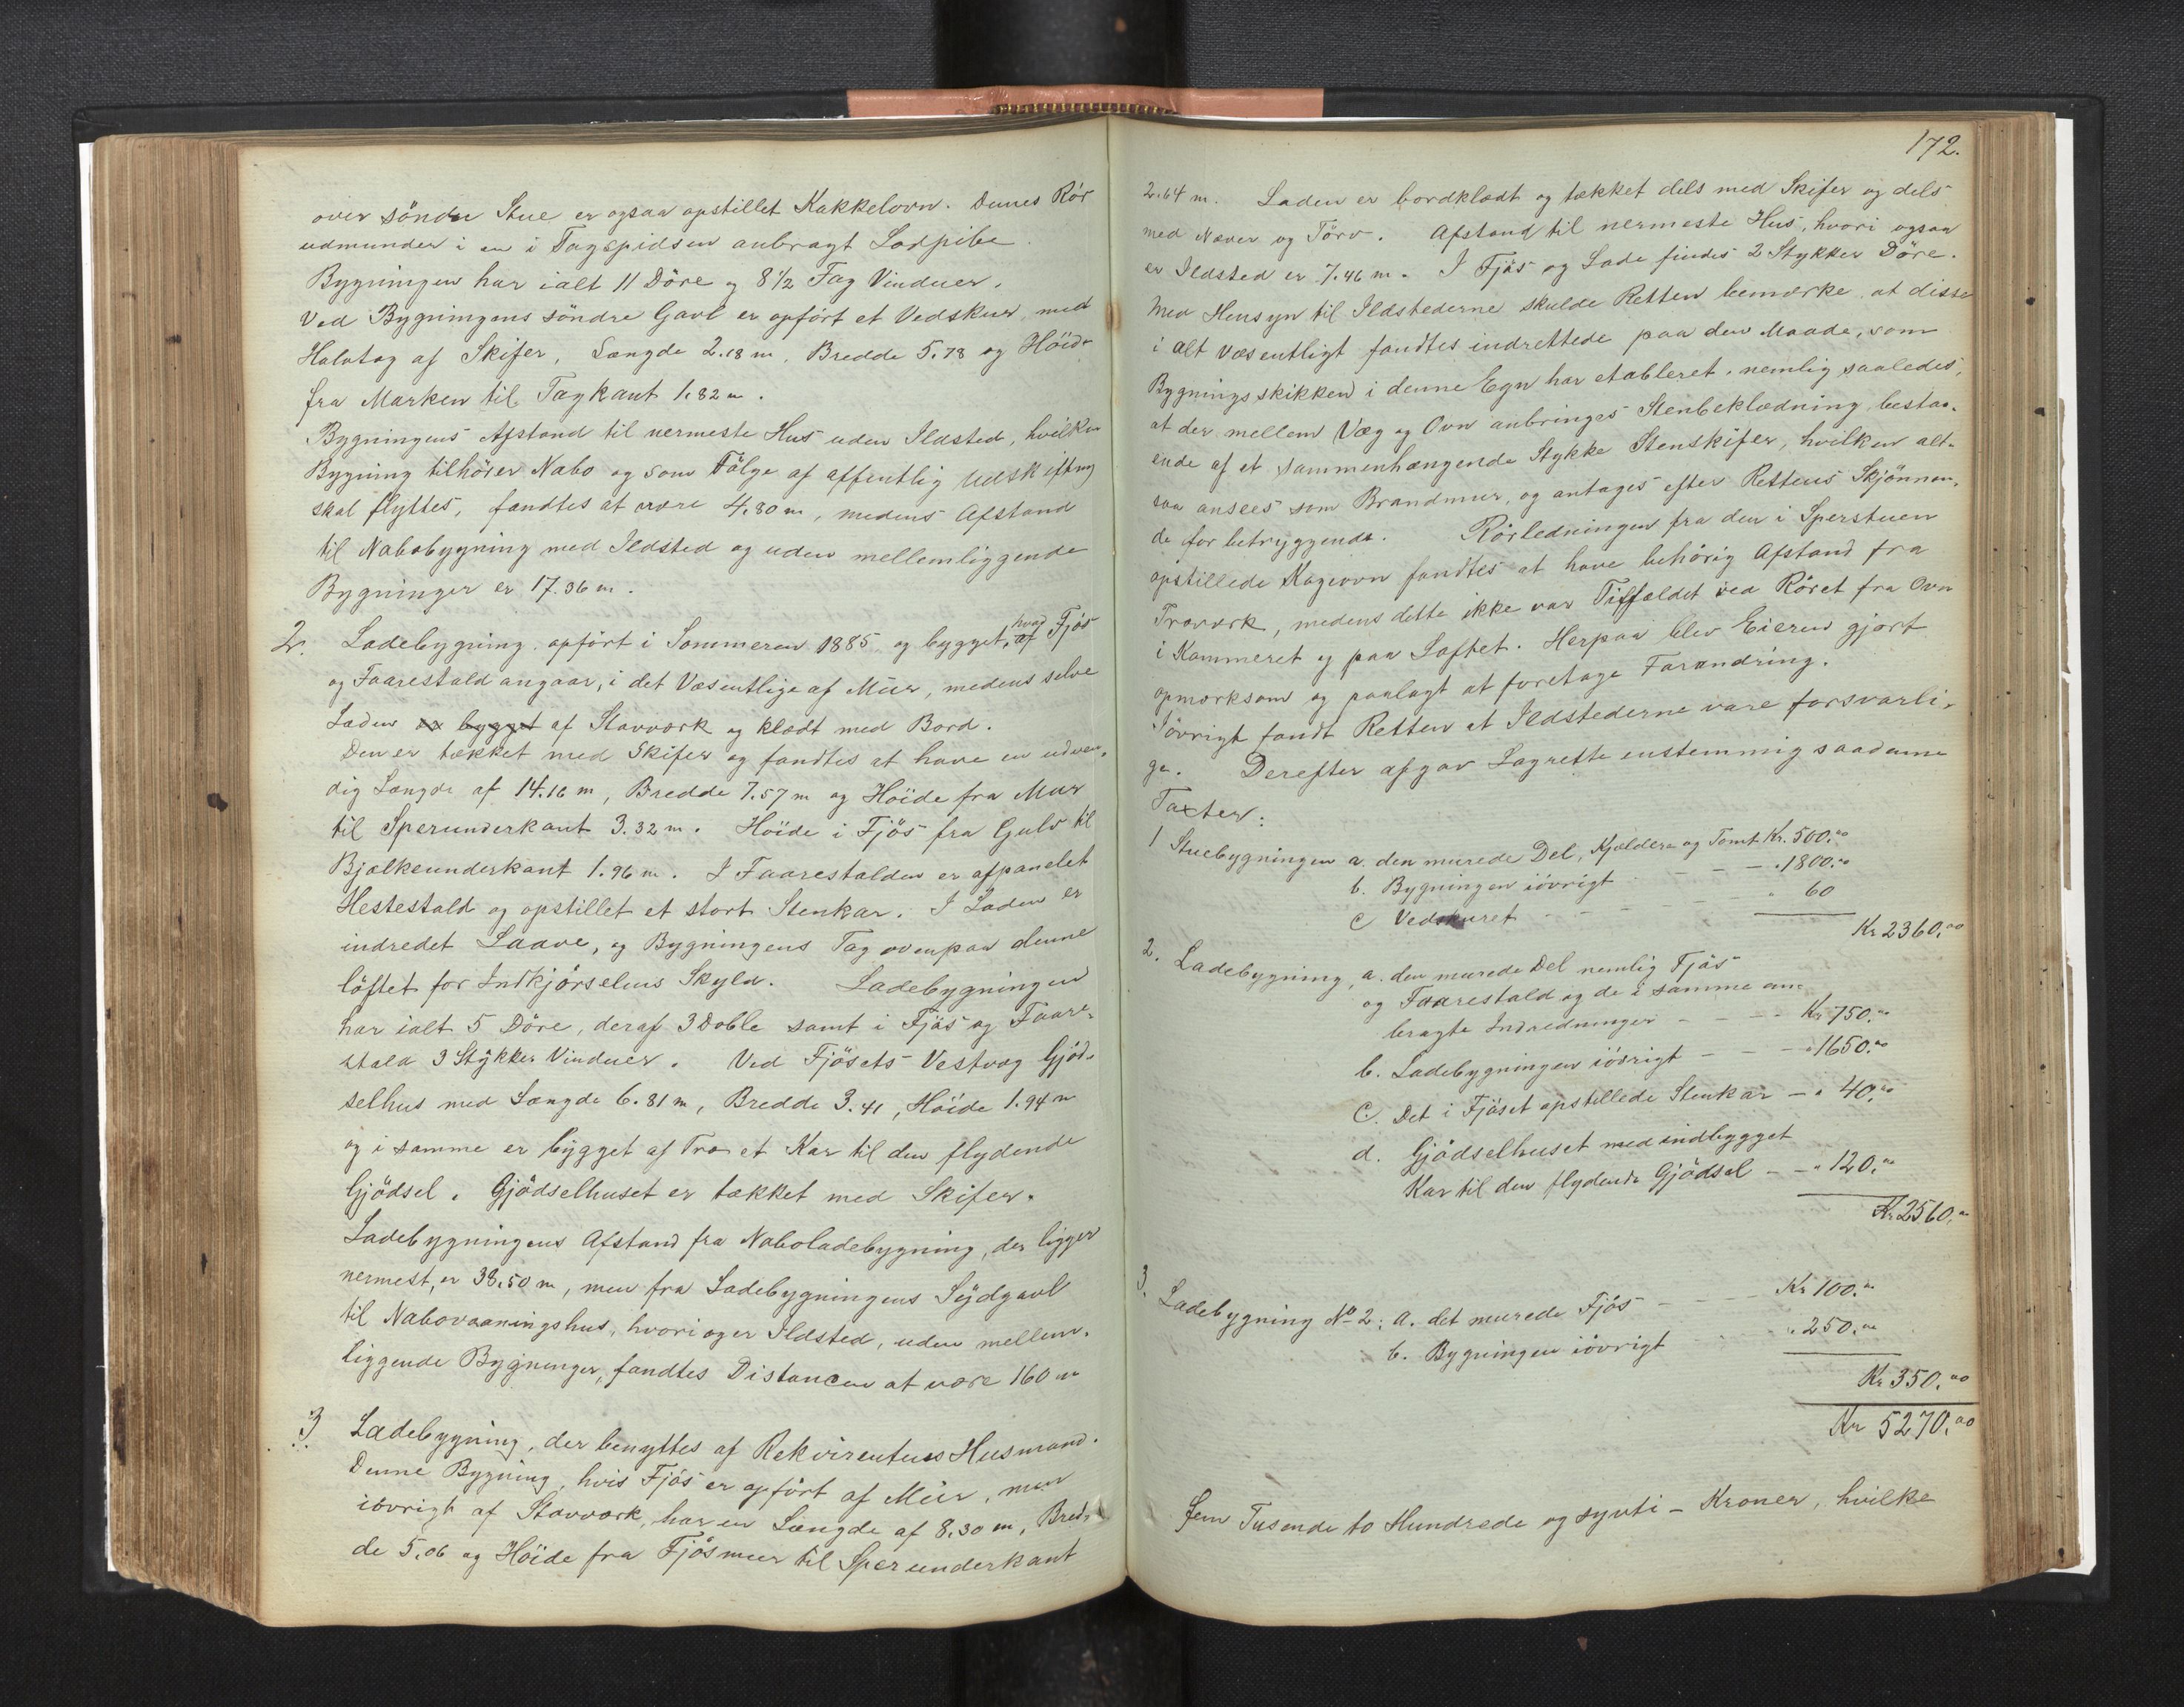 over söndre Stue er ogsaa opstillet Kakkelovn. Dennes Rör
udmunder i en i Tagspidsen anbragt Lodpibe.
Bygningen har ialt 11 Döre og 8 1/2 Fag Vinduer.
Ved Bygningens söndre Gavl er opfört et Vedskur, med
Halvtag af Skifer, Længde 2.18 m, Bredde 5.78 og Höide
fra Marken til Tagkant 1.82 m.
Bygningens Afstand til nermeste Hus uden Ildsted, hvilken
Bygning tilhörer Nabo og som Fölge af offentlig Udskiftning
skal flyttes, fandtes at være 4.80 m, medens Afstand
til Nabobygning med Ildsted og uden mellemliggende
Bygninger er 17.36 m.
2. Ladebygning, opfört i Sommeren 1885, og bygget, hvad Fjös
og Faarestald angaar, i det Væsentlige af Mur, medens selve
Laden er bygget af Stavværk og klædt med Bord.
Den er tækket med Skifer og fandtes at have en udven-
dig Længde af 14.16 m, Bredde 7.57 m og Höide fra Mur
til Sperunderkant 3.32 m. Höide i Fjös fra Gulv til
Bjelkeunderkant 1.96 m. I Faarestalden er afpanelet
Hestestald og opstillet et stort Stenkar. I Laden er
indredet Laave, og Bygningens Tag ovenpaa denne
löftet for Indkjörselens Skyld. Ladebygningen
har ialt 5 Döre, deraf 3 Doble samt i Fjös og Faare-
stald 3 Stykker Vinduer. Ved Fjösets Vestvæg Gjöd-
selhus med Længde 6.81 m, Bredde 3.41, Höide 1.94 m
og i samme er bygget af Træ et Kar til den flydende
Gjödsel. Gjödselhuset er tækket med Skifer.
Ladebygningens Afstand fra Naboladebygning, der ligger
nermest, er 38.50 m, men fra Ladebygningens Sydgavl
til Nabovaaningshus, hvori og er Ildsted, uden mellem-
liggende Bygninger, fandtes Distancen at være 160 m
3. Ladebygning, der benyttes af Rekvirentens Husmand.
Denne Bygning, hvis Fjös er opfört af Mur, men
iövrigt af Stavværk, har en Længde af 8.30 m, Bred-
de 5.06 og Höide fra Fjösmur til Sperunderkant
172.
2.64 m. Laden er bordklædt og tækket dels med Skifer og dels
med Never og Törv. Afstand til nermeste Hus, hvori ogsaa
er Ildsted er 7.46 m. I Fjös og Lade findes 2 Stykker Döre.
Med Hensyn til Ildstederne skulde Retten bemærke, at disse
i alt væsentligt fandtes indrettede paa den Maade, som
Bygningsskikken i denne Egn har etableret, nemlig saaledes,
at der mellem Væg og Ovn anbringes Stenbeklædning, bestaa-
ende af et sammenhængende Stykke Stenskifer, hvilken alt-
saa ansees som Brandmur, og antages efter Rettens Skjönnen-
de for betryggende. Rörledningen fra den i Sperstuen
opstillede Kogeovn fandtes at have behörig Afstand fra
Træværk, medens dette ikke var Tilfældet ved Röret fra Ovn
i Kammeret og paa Loftet. Herpaa blev Eieren gjort
opmærksom og paalagt at foretage Forandring.
Iövrigt fandt Retten at Ildstederne vare forsvarli-
ge. Derefter afgav Lagrette enstemmig saadanne
Taxter:
1 Stuebygningen a. den murede Del, Kjældere og Tomt Kr. 500.00
b. Bygningen iövrigt - - - " 1800.00
c Vedskuret - - - - " 60
Kr 2360.00
2. Ladebygning, a. den murede Del nemlig Fjös
og Faarestald og de i samme an-
bragte Indredninger - - - Kr 750.00
b. Ladebygningen iövrigt - - - " 1650.00
C. Det i Fjöset opstillede Stenkar - " 40.00
d. Gjödselhuset med indbygget
Kar til den flydende Gjödsel - - " 120.00
Kr 2560.00
3. Ladebygning No 2: a. det murede Fjös - - - Kr 100.00
b. Bygningen iövrigt " 250.00
Kr 350.00
Kr 5270.00
Fem Tusende to Hundrede og synti - Kroner, hvilke